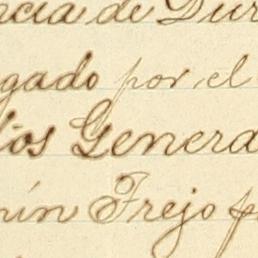 ncia de Dur
gado por el
dios Genera
nín Frejo p